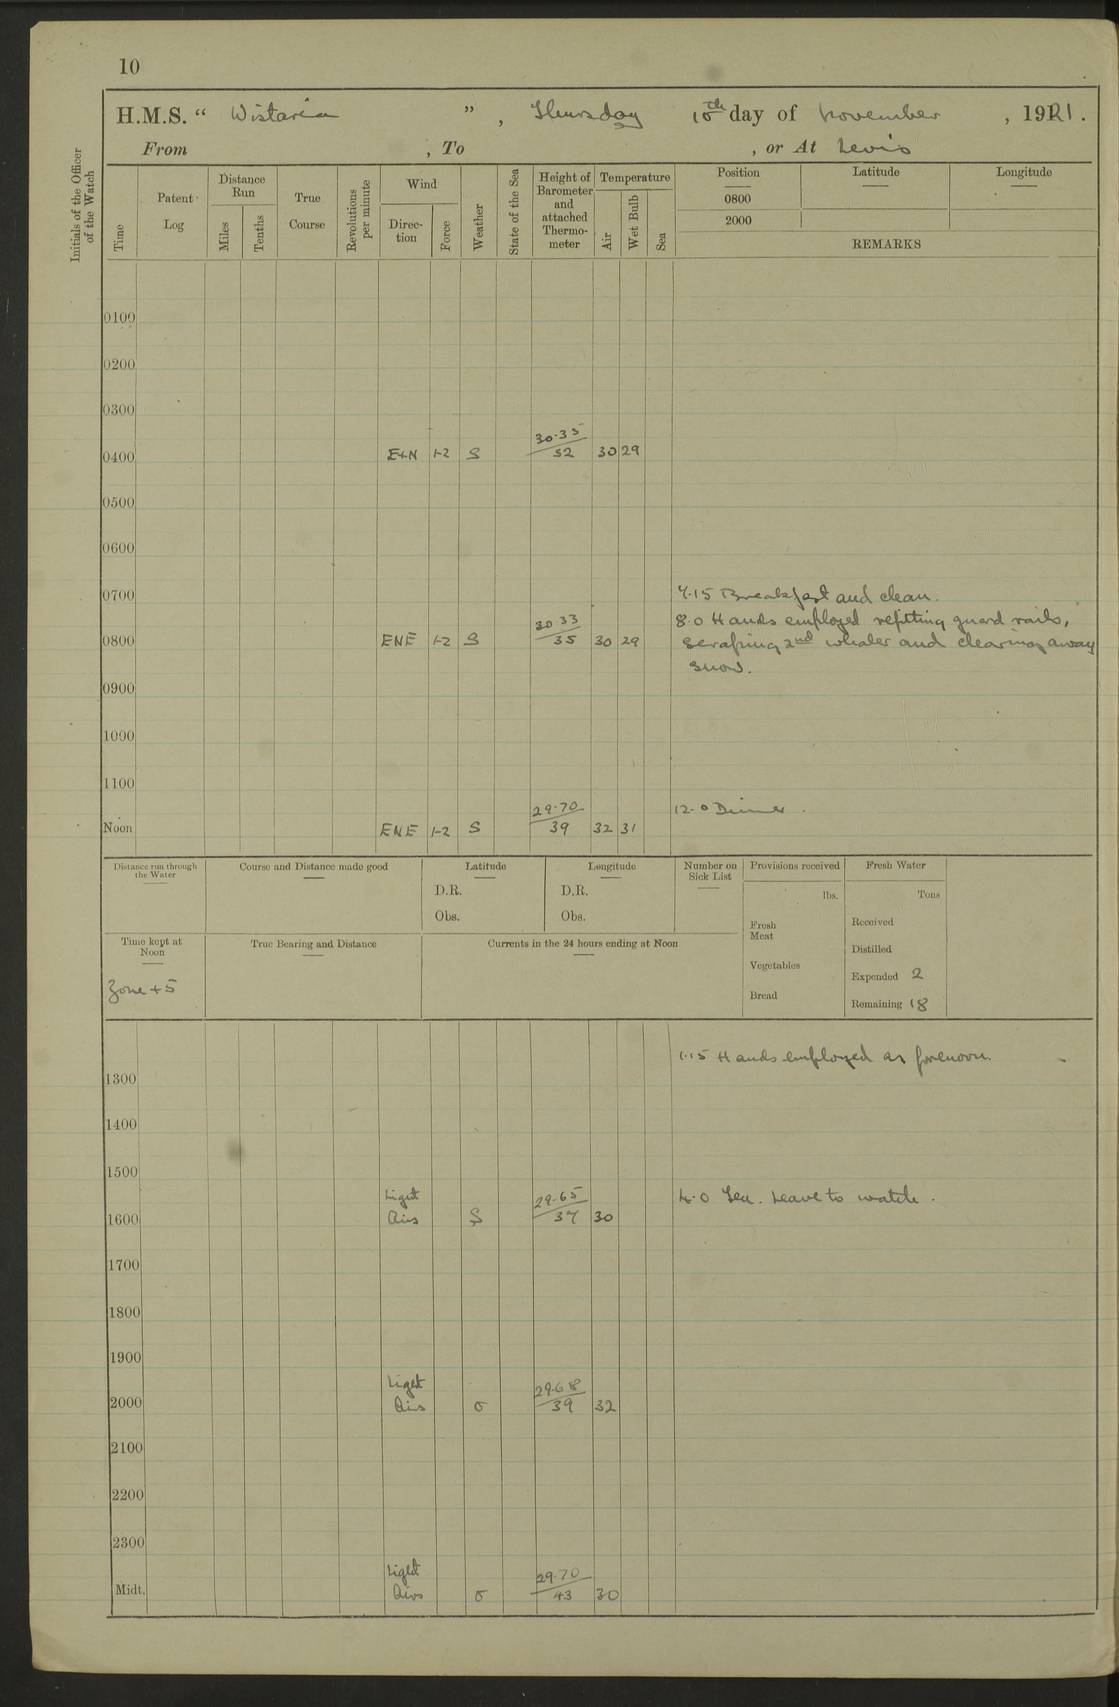 10
H.M.S. “ Wistaria ” , Thursday 10th day of November , 1921.
From , To , or At Levis
Initials of the Officer of the Watch
Time
Patent Log
Distance Run
Miles
Tenths
True Course
Revolutions per minute
Wind
Direc-tion
Force
Weather
State of the Sea
Height of Barometer and attached Thermo-meter
Temperature
Air
Wet Bulb
Sea
Position Latitude Longitude
0800
2000
REMARKS
0100
0200
0300
30.35
0400 1-2 S 52 30 29
0500
0600
0700 7.15 Breakfast and clean.
30 33 8.0 Hands employed refitting guard rails,
0800 ENE 1-2 S 35 30 29 scraping 2nd whaler and clearing away
snow.
0900
1000
1100
29.70 12.0 Dinner.
Noon ENE 1-2 S 39 32 31
Distance run through the Water
Course and Distance made good
Latitude
D.R.
Obs.
Longitude
D.R.
Obs.
Number on Sick List
Provisions received
lbs.
Fresh Meat
Vegetables
Bread
Fresh Water
Tons
Received
Distilled
Expended 2
Remaining 18
Time kept at Noon
Zone +5
True Bearing and Distance
Currents in the 24 hours ending at Noon
1.15 Hands employed as forenoon.
1300
1400
1500
Light 29.65 4.0 Tea. Leave to watch.
1600 Airs S 37 30
1700
1800
1900
Light 29.68
2000 Airs o 39 32
2100
2200
2300
Light 29.70
Midt. Airs o 43 30